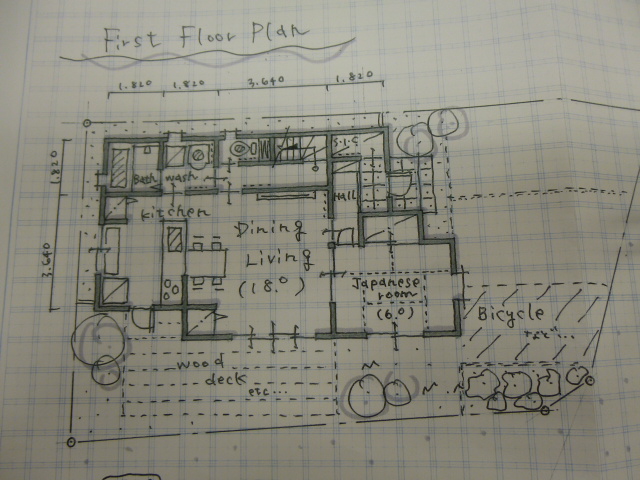 First Floor Plan
1.820
1.820
3.640
1.820
1.820
3.640
S.I.C
Bath
wash
HALL
kitchen
Dining
Living
(18.0)
Japanese
room
(6.0)
Bicycle
wood
deck
etc...